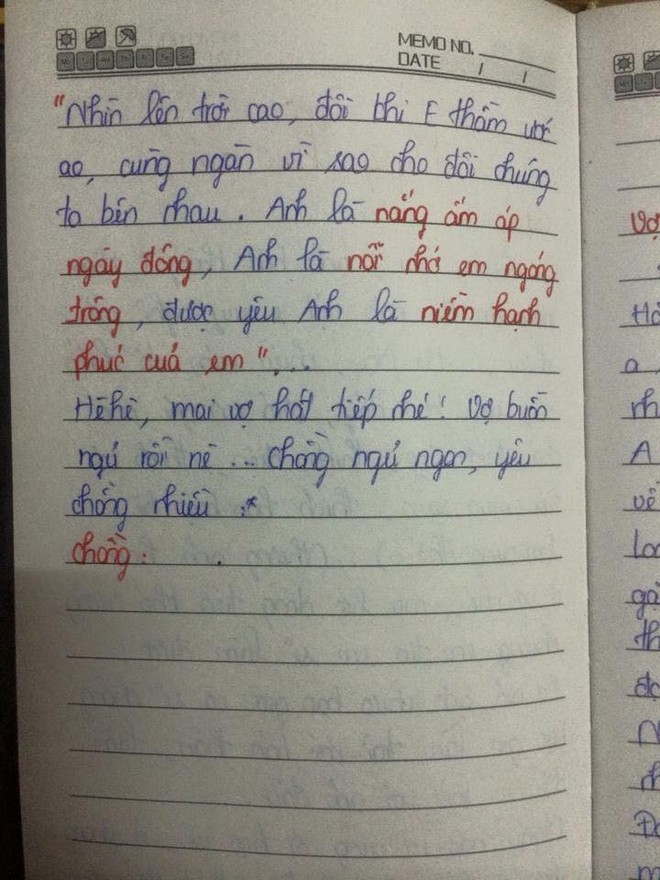 MEMO NO.
DATE / /
"Nhìn lên trời cao, đôi khi E thầm ước
ao, cùng ngàn vì sao cho đôi chúng
ta bên nhau. Anh là nắng ấm áp
ngày đông, Anh là nỗi nhớ em ngóng
trông, được yêu Anh là niềm hạnh
phúc của em"...
Hêhê, mai vợ hát tiếp nhé! Vợ buồn
ngủ rồi nè... chồng ngủ ngon, yêu
chồng nhiều :*
chồng: .
Vợ
a
nh
A
về
gá
th
N
nh
m